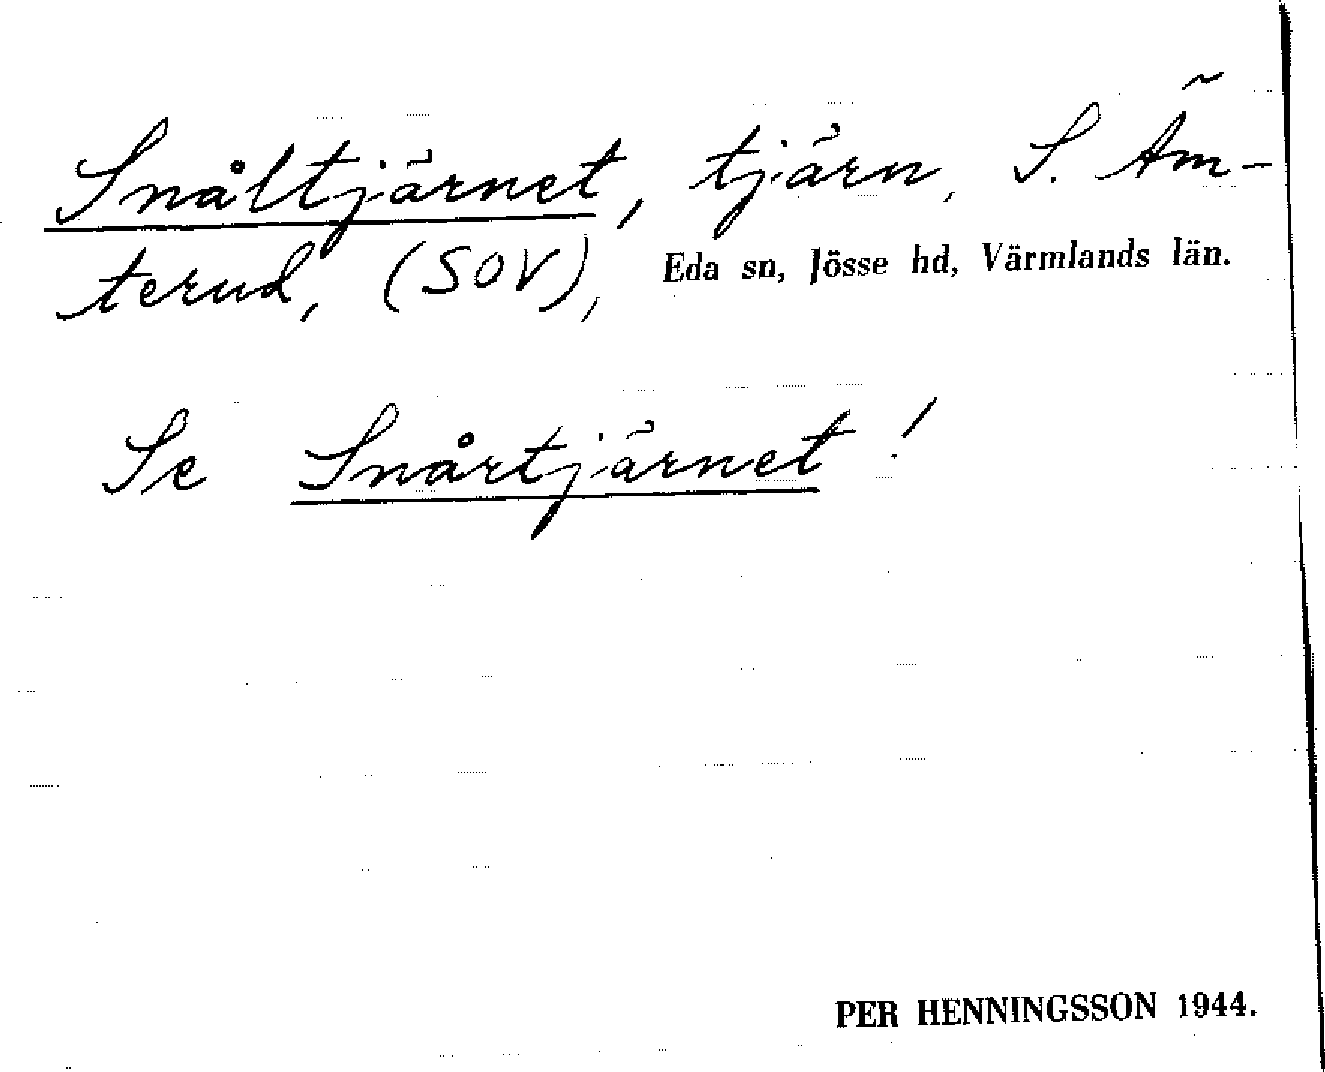 Snåltjärnet, tjärn, S. Äm-
terud, (SOV), Eda sn, Jösse hd, Värmlands län.
Se Snårtjärnet!
PER HENNINGSSON 1944.